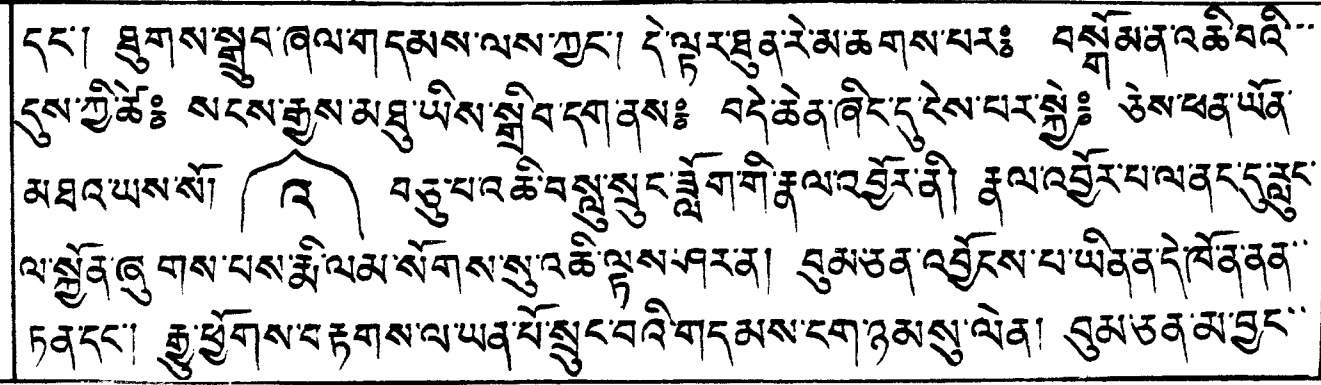 དང༌། ཐུགས་སྒྲུབ་ཞལ་གདམས་ལས་ཀྱང༌། དེ་ལྟར་ཐུན་རེ་མ་ཆགས་པར༔ བསྒོམ་ན་འཆི་བའི་
དུས་ཀྱི་ཚེ༔ སངས་རྒྱས་མཐུ་ཡིས་སྒྲིབ་དག་ནས༔ བདེ་ཆེན་ཞིང་དུ་ངེས་པར་སྐྱེ༔ ཅེས་ཕན་ཡོན་
མཐའ་ཡས་སོ། ༼ ༢ ༽ བཅུ་པ་འཆི་བསླུ་སྲུང་ཟློག་གི་རྣལ་འབྱོར་ནི། རྣལ་འབྱོར་པ་ལ་ནང་དུ་རླུང་
ལ་སྐྱོན་ཞུགས་པས་རྨི་ལམ་སོགས་སུ་འཆི་ལྟས་ཤར་ན། བུམ་ཅན་འབྱོངས་པ་ཡིན་ན་དེ་ཁོ་ན་ནན་
ཏན་དང༌། རྒྱུ་ཕྱོགས་བརྟགས་ལ་ཡན་པོ་སྲུང་བའི་གདམས་ངག་ཉམསུ་ལེན། བུམ་ཅན་མ་བྱང་